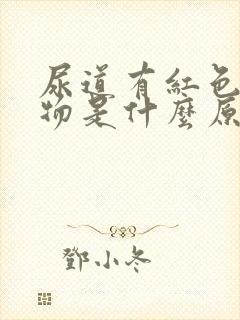 尿道有紅色
物是什麼原
鄧小冬